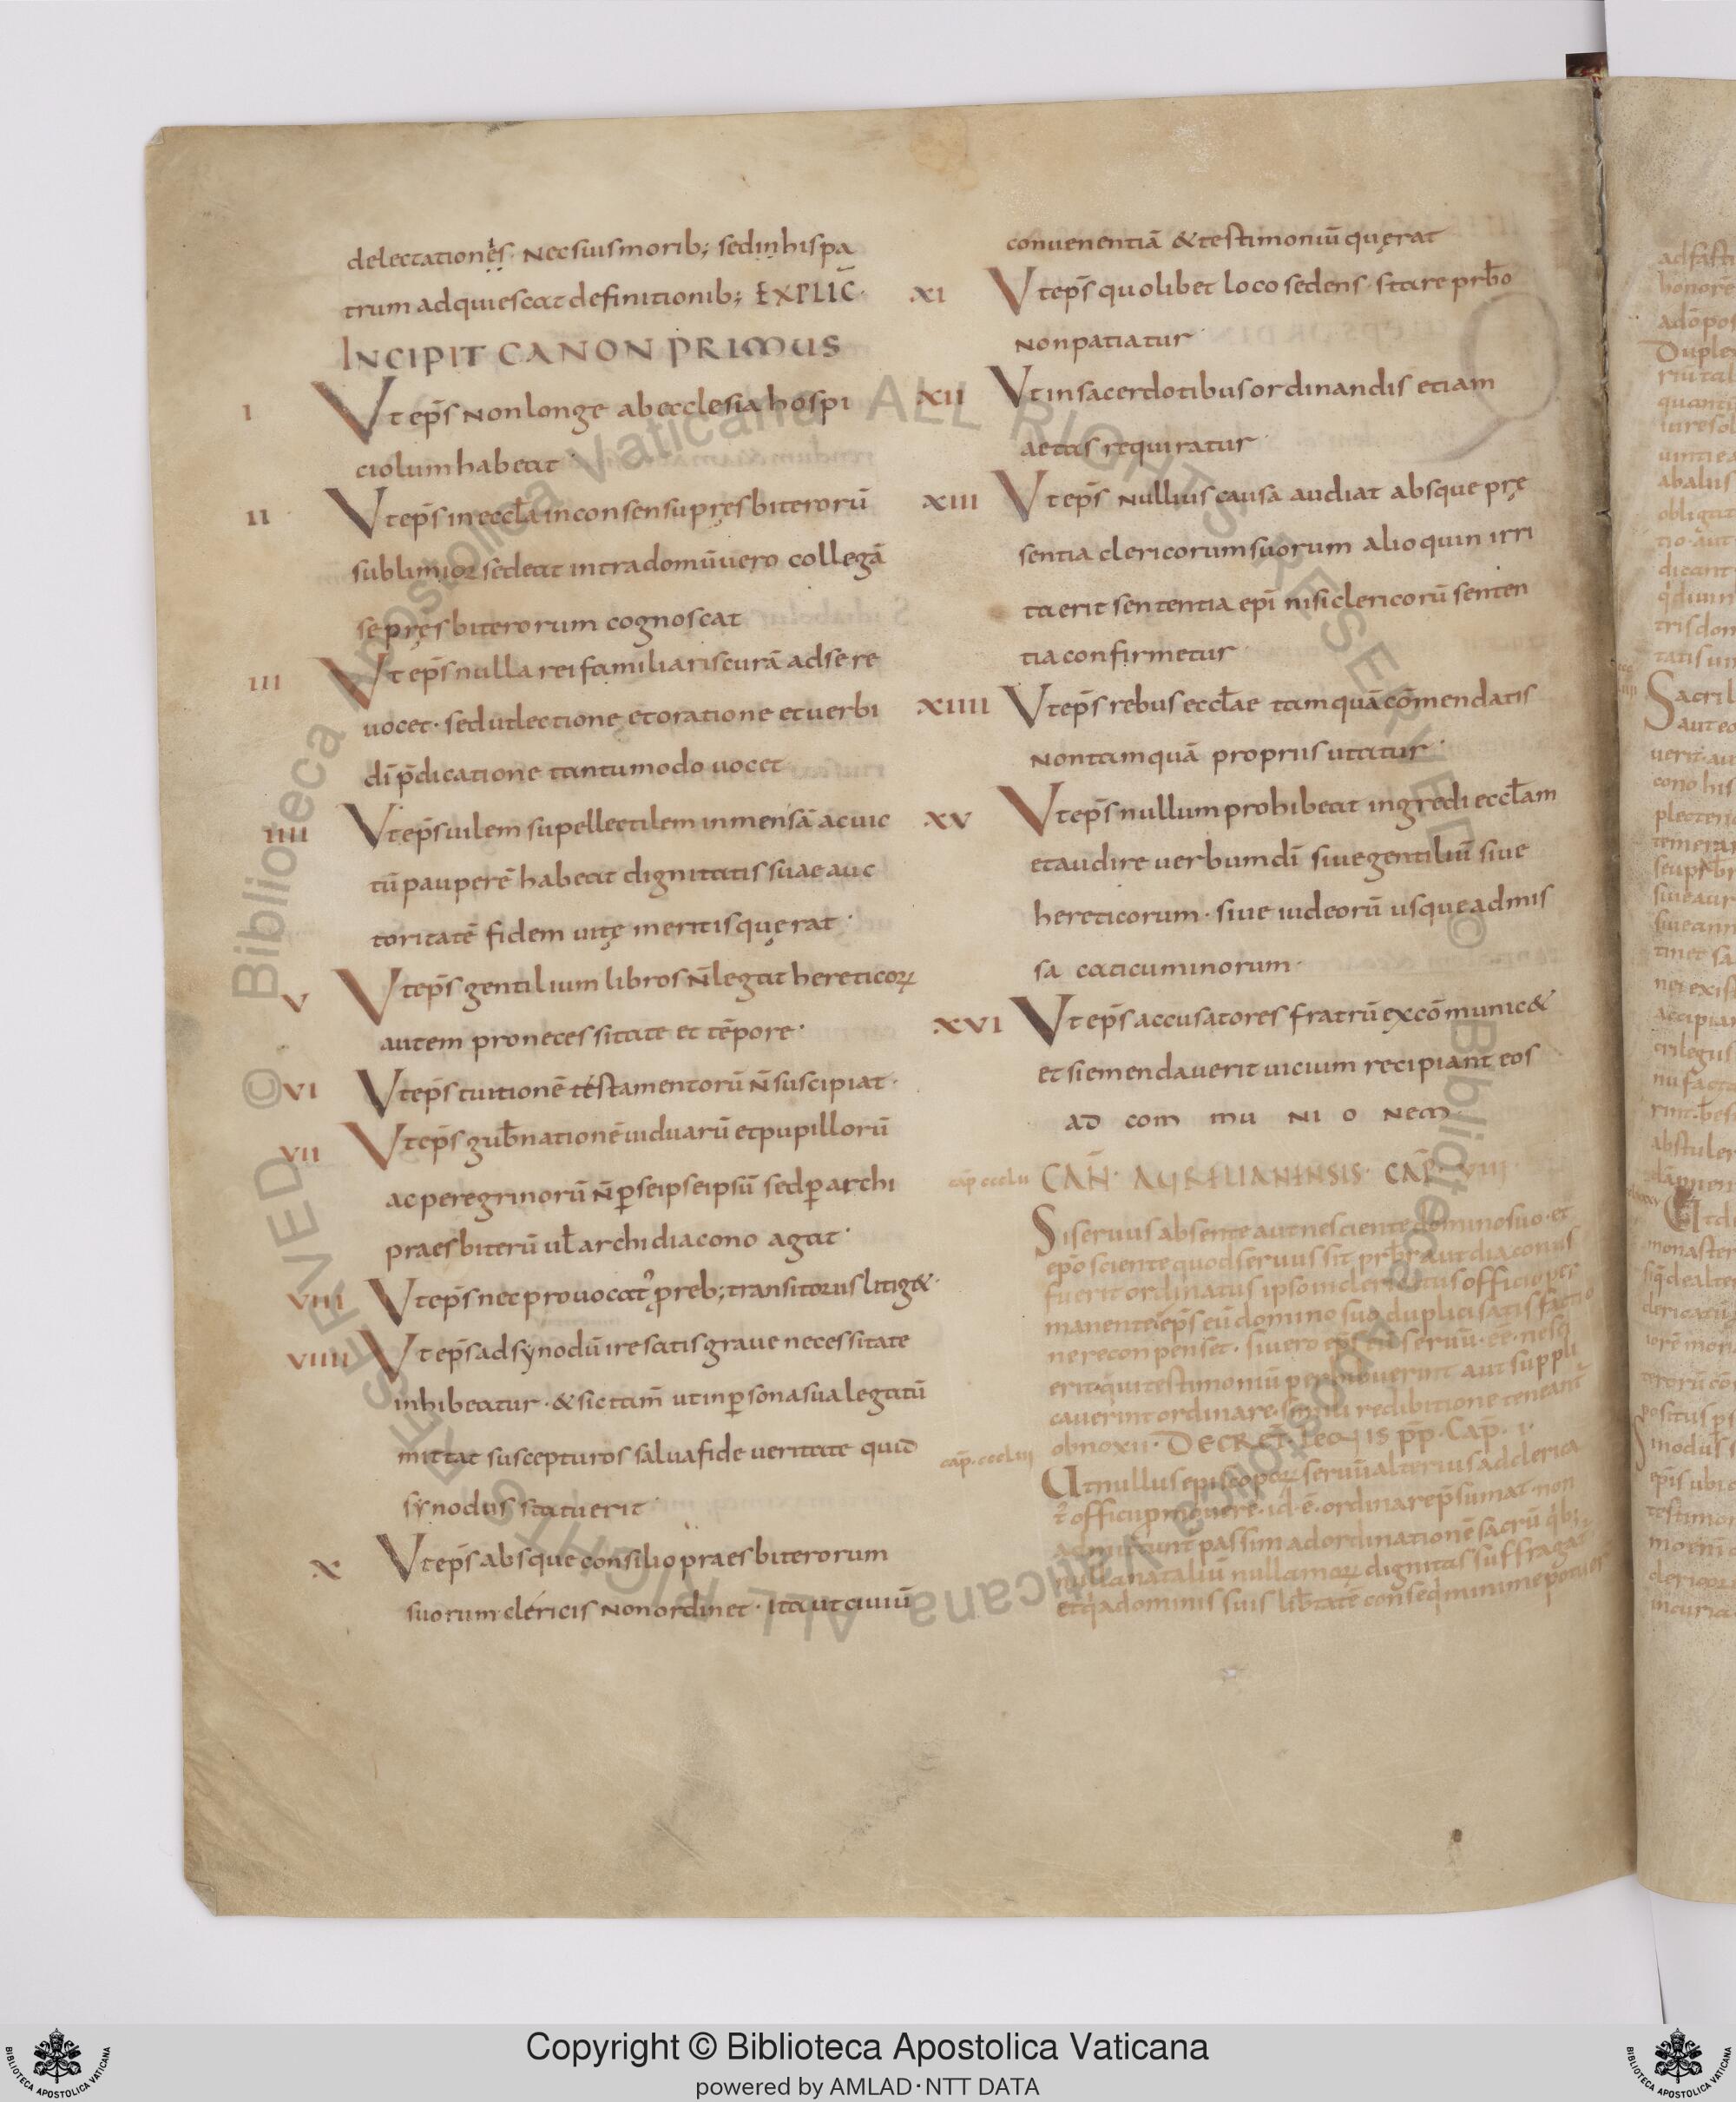 delectationes· Nec suis morib; sed in his pa
trum adquiescat definitionib; EXPLIC̄·
INCIPIT CANON PRIMUS
I Vt ep̄s Non longe ab ecclesia hospi
ciolum habeat·
II Vt ep̄s in eccl̄a in consensu pręsbiterorū
sublimior sedeat intra domū uero collegā
se pręsbiterorum cognoscat
III Vt ep̄s nulla rei familiaris curā ad se re
uocet· sed ut lectione et oratione et uerbi
dī p̄dicatione tantumodo uocet
IIII Vt ep̄s uilem supellectilem in mensā ac uic
tū pauperē habeat dignitatis suae auc
toritatē fidem uitę meritis quęrat·
V Vt ep̄s gentilium libros N̄ legat hereticoꝝ
autem pro necessitate et tēpore·
VI Vt ep̄s tuitionē testamentorū N̄ suscipiat·
VII Vt ep̄s gub̄natione uiduarū et pupillorū
ac peregrinorū N̄ ꝑ se ipse ipsū sed ꝑ archi
praesbiterū ul̄ archidiacono agat·
VIII Vt ep̄s nec prouocat᷒ p reb; transitorus litig&·
VIIII Vt ep̄s ad sẏnodū ire satis graue necessitate
inhibeatur· & sic tam̄ ut in ꝑsona sua legatū
mittat suscepturos salua fide ueritate quid
sẏnodus statuerit·
X Vt ep̄s absque consilio praesbiterorum
suorum clericis Non ordinet· Ita ut ciuiū
conuenentiā & testimoniū quęrat
XI Vt ep̄s quolibet loco sedens· stare prb̄o
Non patiatur·
XII Vt in sacerdotibus ordinandis etiam
aetas requiratur·
XIII Vt ep̄s Nullius causā audiat absque prę
sentia clericorum suorum alioquin irri
ta erit sententia epī nisi clericorū senten
tia confirmetur·
XIIII Vt ep̄s rebus eccl̄ae tamquā cōmendatis
Non tamquā propriis utatur·
XV Vt ep̄s nullum prohibeat ingredi eccl̄am
et audire uerbum dī siue gentiliū siue
hereticorum· siue iudeorū usque ad mis
sa caticuminorum·
XVI Vt ep̄s accusatores fratrū excōmunic&
et si emendauerit uicium recipiant eos
ad com mu ni o nem·
cap̄ cccLII CAN̄· AURELIANENSIS· CAP̄· VIII·
Si seruus absente aut nesciente domino suo· et
ep̄o sciente quod seruus sit prb̄r aut diaconus
fuerit ordinatus ipso in clericatus officio per
manente· ep̄s eū domino suo duplici satisfactio
ne reconpenset· si uero ep̄s eū seruū· eē· nesci
erit· qui testimoniū perhibuerint aut suppli
cauerint ordinare· simili redibitione teneant᷒
obnoxii· DECRET· LEONIS p̄p· Cap̄· I·
cap̄· cccLIII Ut nullus episcopoꝝ seruū alterius ad clerica
officiū p̄mouere· id· ē· ordinare p̄sumat· non
admittunt passim ad ordinationē sacrū
nulla nataliū nulla moꝝ dignitas suffragat
et a dominis suis lib̄tatē conseq minime
Copyright © Biblioteca Apostolica Vaticana
powered by AMLAD·NTT DATA